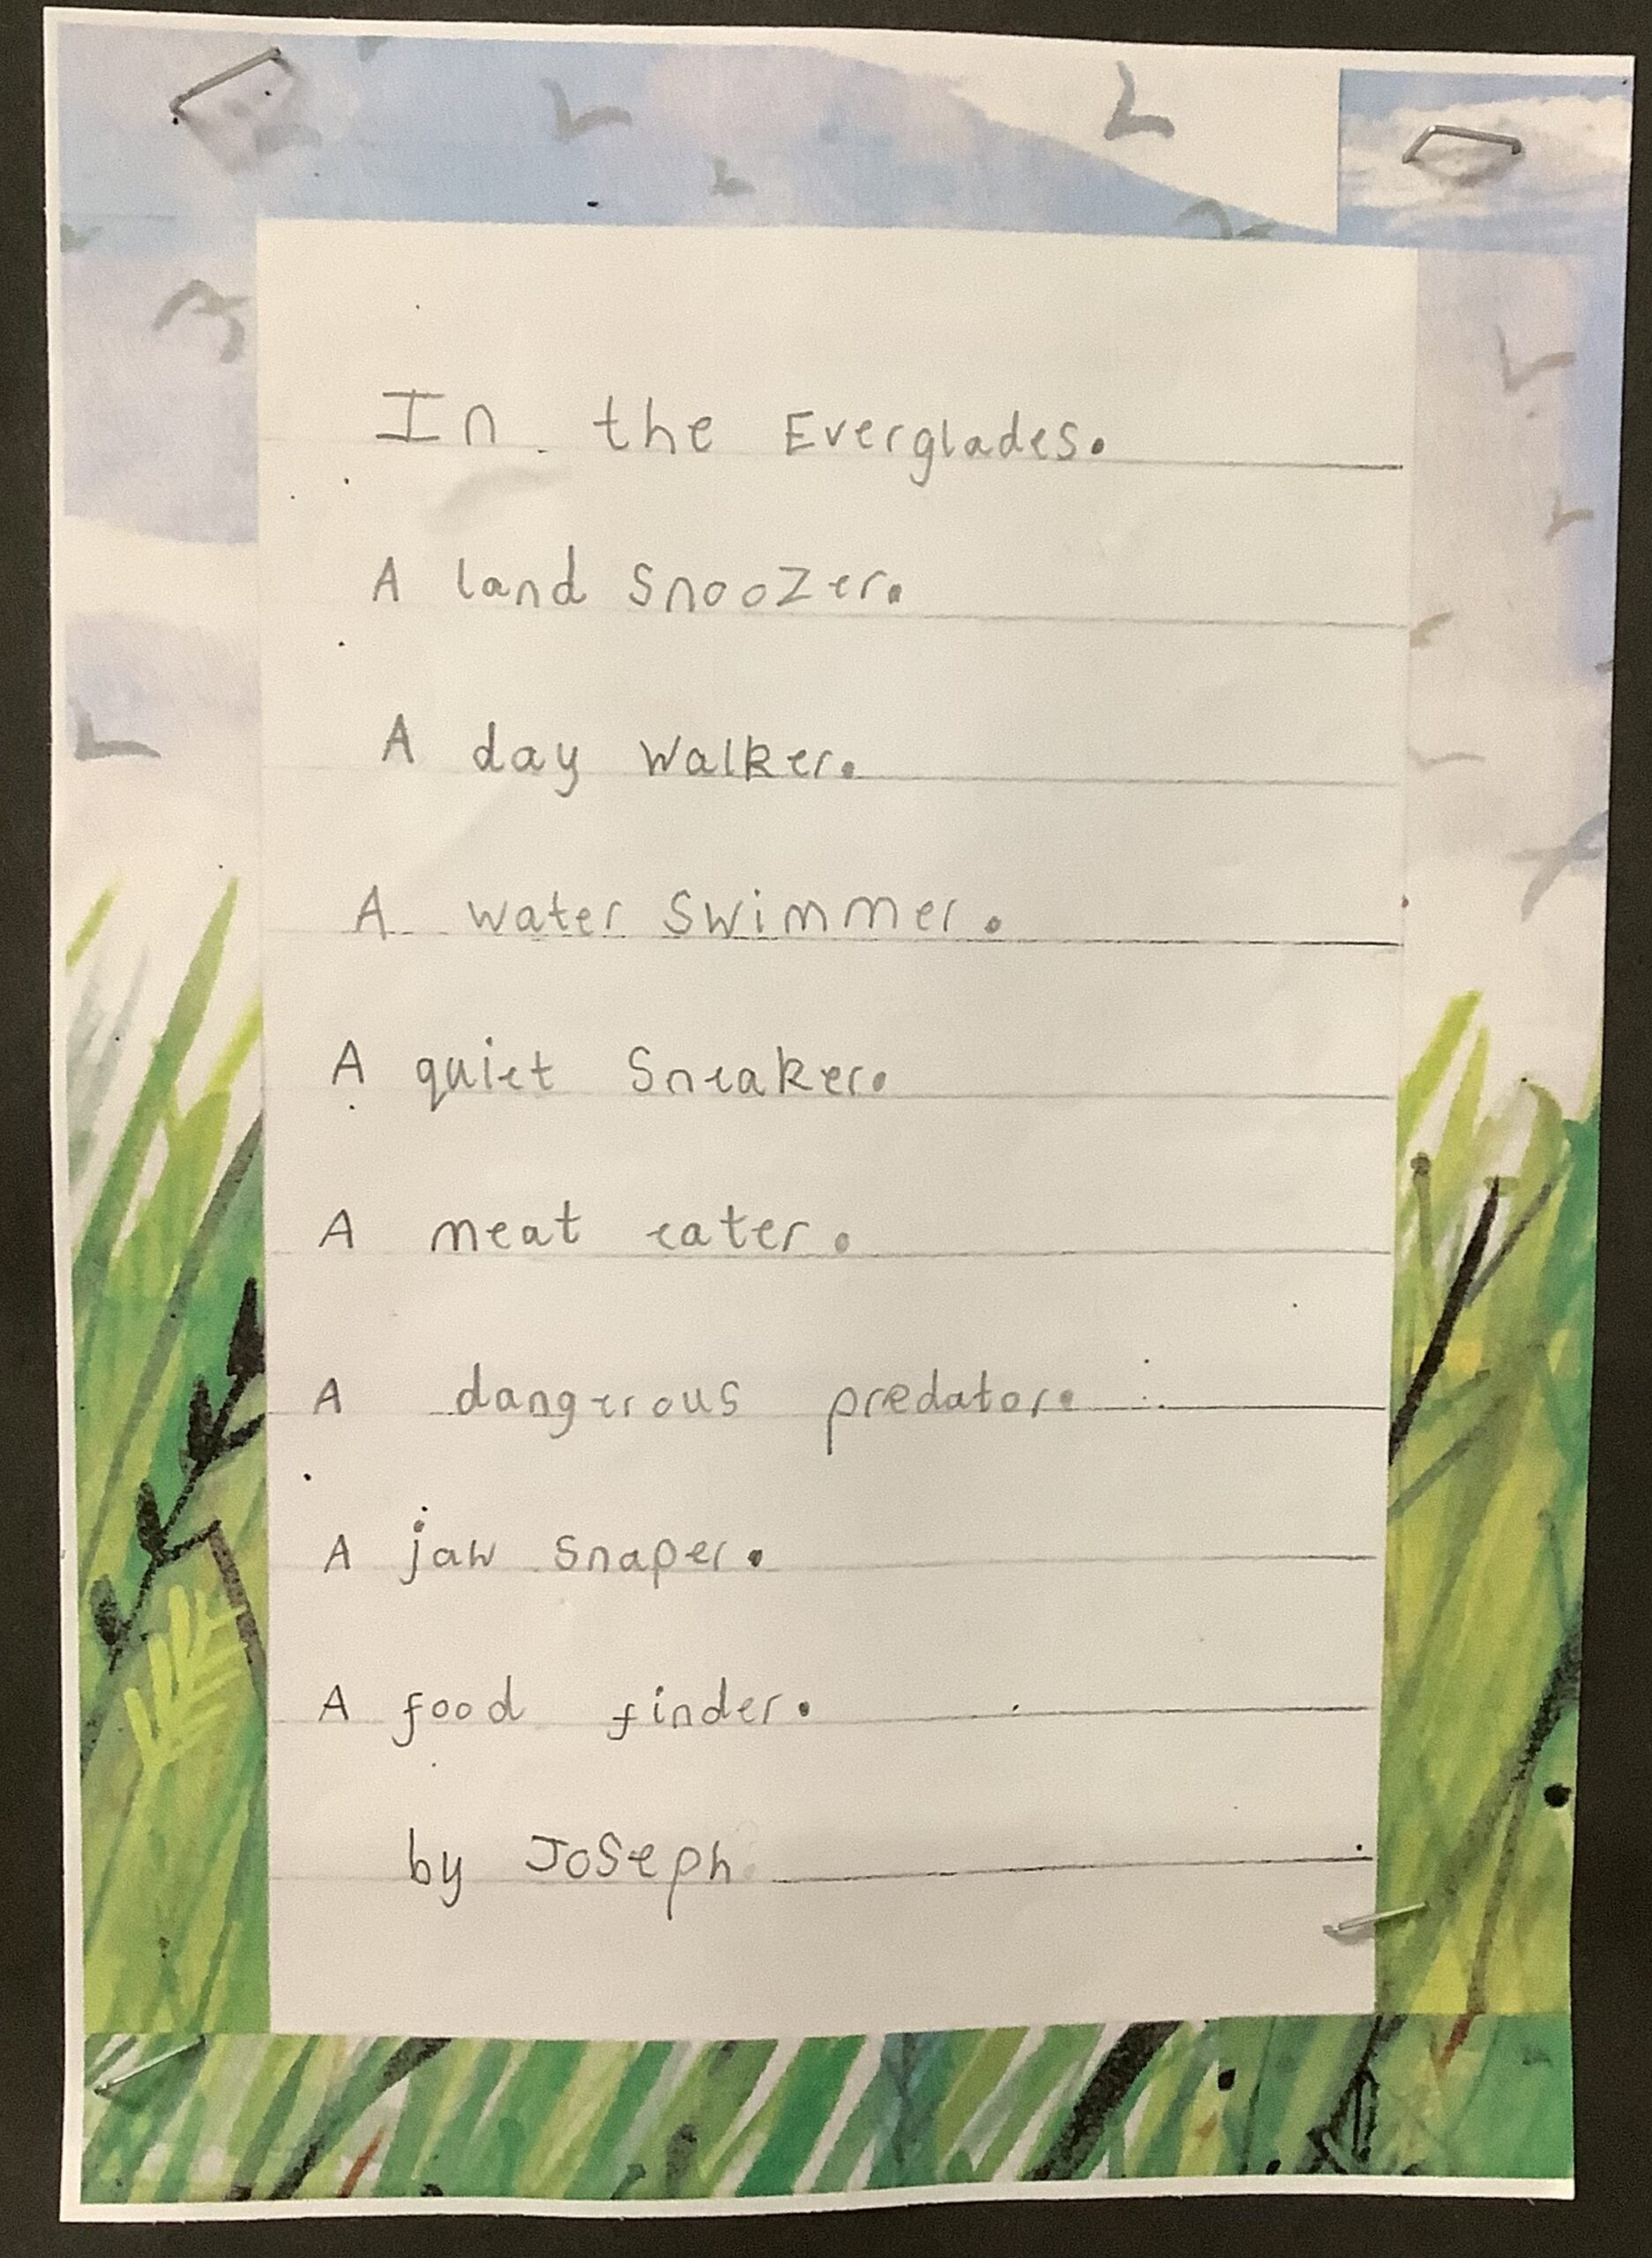 In the Everglades.
A land Snoozer.
A day Walker.
A water Swimmer.
A quiet Sneaker.
A meat eater.
A dangerous predator.
A jaw Snaper.
A food finder.
by Joseph